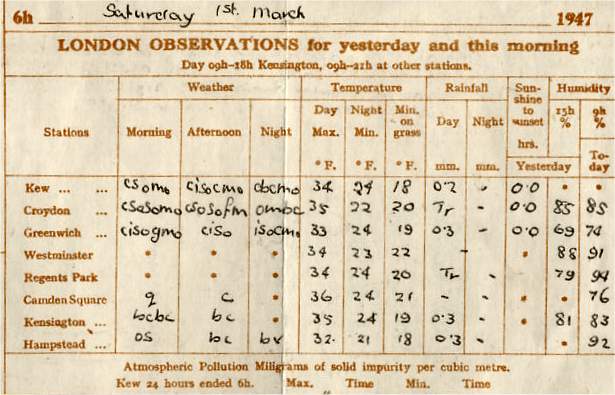 6h Saturday 1st. March 1947
LONDON OBSERVATIONS for yesterday and this morning
Day 09h–18h Kensington, 09h–21h at other stations.
Weather Temperature Rainfall Sun-shine to sunset Humidity
Stations Morning Afternoon Night Day Max. Night Min. Min. on grass Day Night hrs. 15h % 9h %
°F. °F. °F. mm. mm. Yesterday To-day
Kew ... ... 34 24 18 0.2 - 0.0 * *
Croydon ... 35 22 20 Tr - 0.0 85 85
Greenwich ... ciso 33 24 19 0.3 - 0.0 69 74
Westminster * * * 34 23 22 * 88 91
Regents Park * * * 34 24 20 Tr - * 79 94
Camden Square c * 36 24 21 - - * * 76
Kensington ... bcbc bc * 35 24 19 0.3 - * 81 83
Hampstead ... os bc 32. 21 18 0.3 - * 92
Atmospheric Pollution Milligrams of solid impurity per cubic metre.
Kew 24 hours ended 6h. Max. Time Min. Time